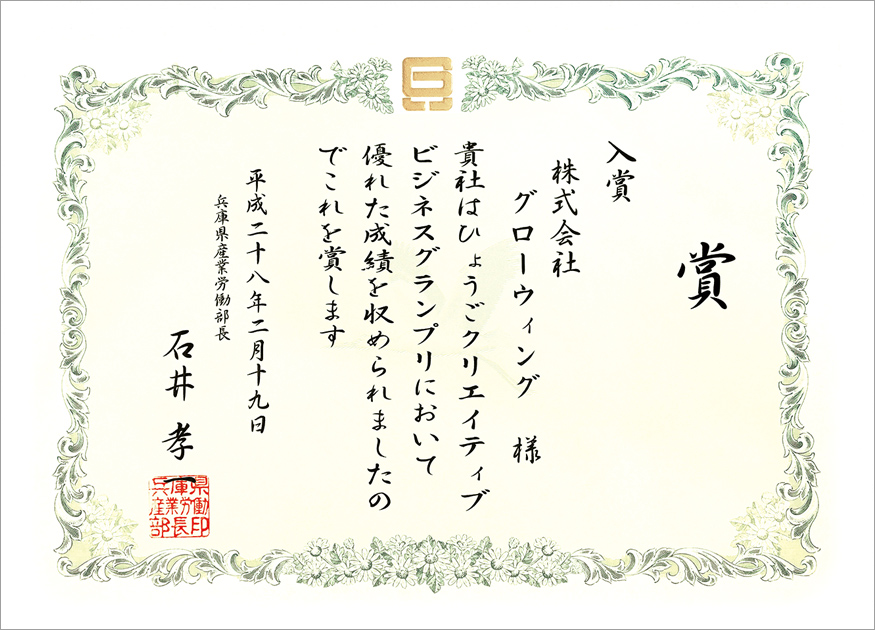 賞
入賞
株式会社
グローウィング 様
貴社はひょうごクリエイティブ
ビジネスグランプリにおいて
優れた成績を収められましたの
でこれを賞します
平成二十八年二月十九日
兵庫県産業労働部長
石井 孝一
兵庫県
産業労働
部長印